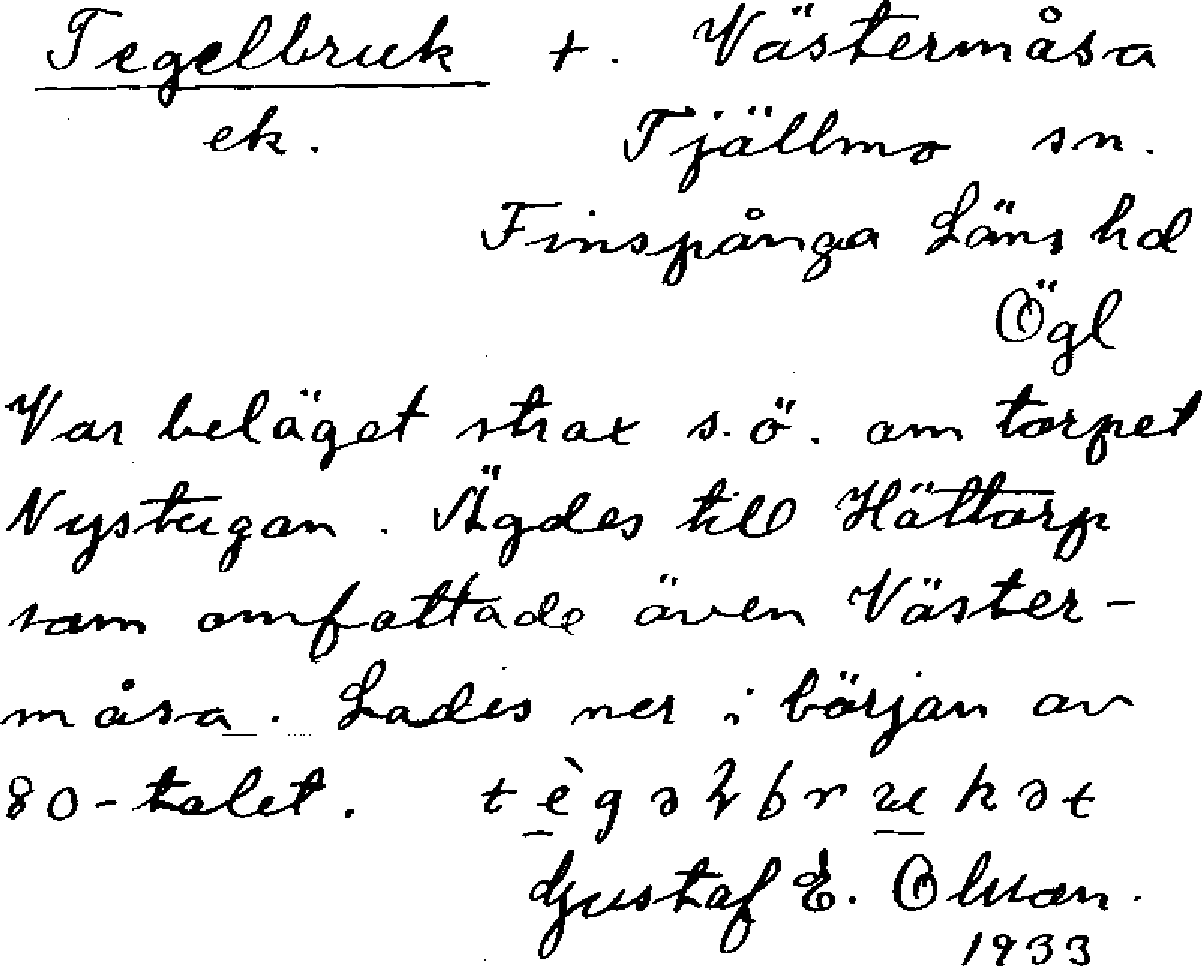 Tegelbruk +. Västermåsa
ek. Tjällmo sn.
Finspånga Läns hd
Ögl
Var beläget strax s.ö. om torpet
Nystugan. Ägdes till Hättorp
som omfattade även Väster-
måsa. Lades ner i början av
80-talet. tègəlbrukət
Gustaf E. Olsson.
1933